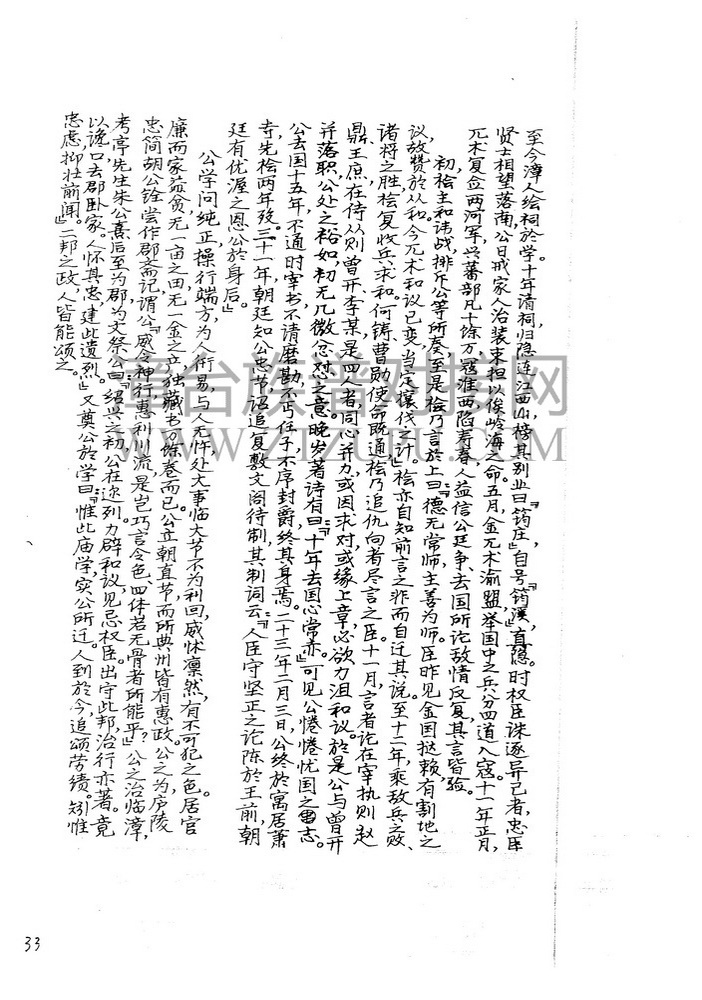 至今漳人绘祠於学。十年请祠归隐连江西山，榜其别业曰『筠庄』，自号『筠溪』真隐。时权臣诛逐异己者，忠臣
贤士相望落南，公日戒家人治装束担以俟岭海之命。五月，金兀术渝盟，举国中之兵分四道入寇。十一年正月，
兀术复佥两河军，兴蕃部凡十馀万寇淮西，陷寿春。人益信公廷争、去国所论敌情反复，其言皆验。
初桧主和讳战，排斥公等所奏，至是桧乃言於上曰：『德无常师，主善为师。臣昨见金国挞赖，有割地之
议，故赞於从和。今兀术和议已变，当定攘伐之计。』桧亦自知前言之非而自迁其说。至十二年，乘敌兵之败、
诸将之胜，桧复收兵求和。何铸、曹勋使命既通，桧乃追仇向者尽言之臣。十一月，言者论在宰执则赵
鼎、王庶，在侍从则曾开、李某，是四人者，同心并力，或因求对，或缘上章，必欲力沮和议。於是公与曾开
并落职，公处之裕如，初无几微忿怼之意。晚岁著诗有曰：『十年去国心常赤。』可见公惓惓忧国之志。
公去国十五年，不通时宰书，不请磨勘，不丐任子，不序封爵，终其身焉。二十三年二月三日，公终於寓居萧
寺，先桧两年殁。三十一年，朝廷知公忠节，诏追复敷文阁待制，其制词云：『人臣守坚正之论陈於王前，朝
廷有优渥之恩公於身后。』
公学问纯正，操行端方，为人㣔易，与人无忤。处大事临大节，不为利回，威怵凛然，有不可犯之色。居官
廉而家益贫，无一亩之田，无一金之产，独藏书万馀卷而已。公立朝直节，而所典州皆有惠政。公之为庐陵，
忠简胡公铨尝作郡斋记，谓公『威令神行，惠利川流，是岂巧言令色、四体若无骨者所能乎？』公之治临漳，
考亭先生朱公熹后至为郡，为文祭公曰：『绍兴之初，公在迩列，力辟和议，见忌权臣。出守此邦，治行亦著。竟
以谗口，去郡卧家。人怀其忠，建此遗烈。』又奠公於学曰：『惟此庙学，实公所迁。人到於今，追颂劳绩。矧惟
忠虑，抑壮前闻。』二邦之政，人皆能颂之。
33
台族谱对接网
WWW.TZTZUPU.COM